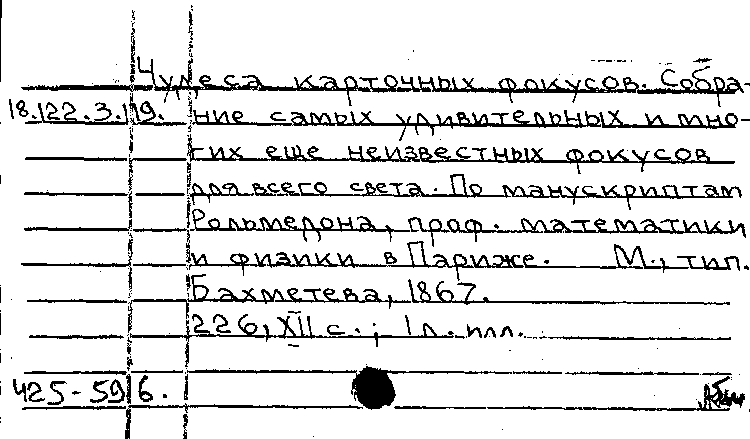 Чудеса карточных фокусов. Собра-
18.122.3.119. ние самых удивительных и мно-
гих еще неизвестных фокусов
для всего света. По манускриптам
Рольмедона, проф. математики
и физики в Париже. М., тип.
Бахметева, 1867.
226, XII с.; 1 л. илл.
425-59 б.